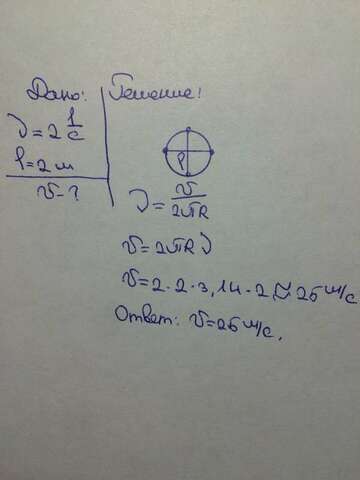 Дано:
ν = 2 1/с
l = 2 м
v - ?
Решение:
l
ν = v/2πR
v = 2πRν
v = 2 · 2 · 3,14 · 2 ≈ 25 м/с
Ответ: v = 25 м/с.